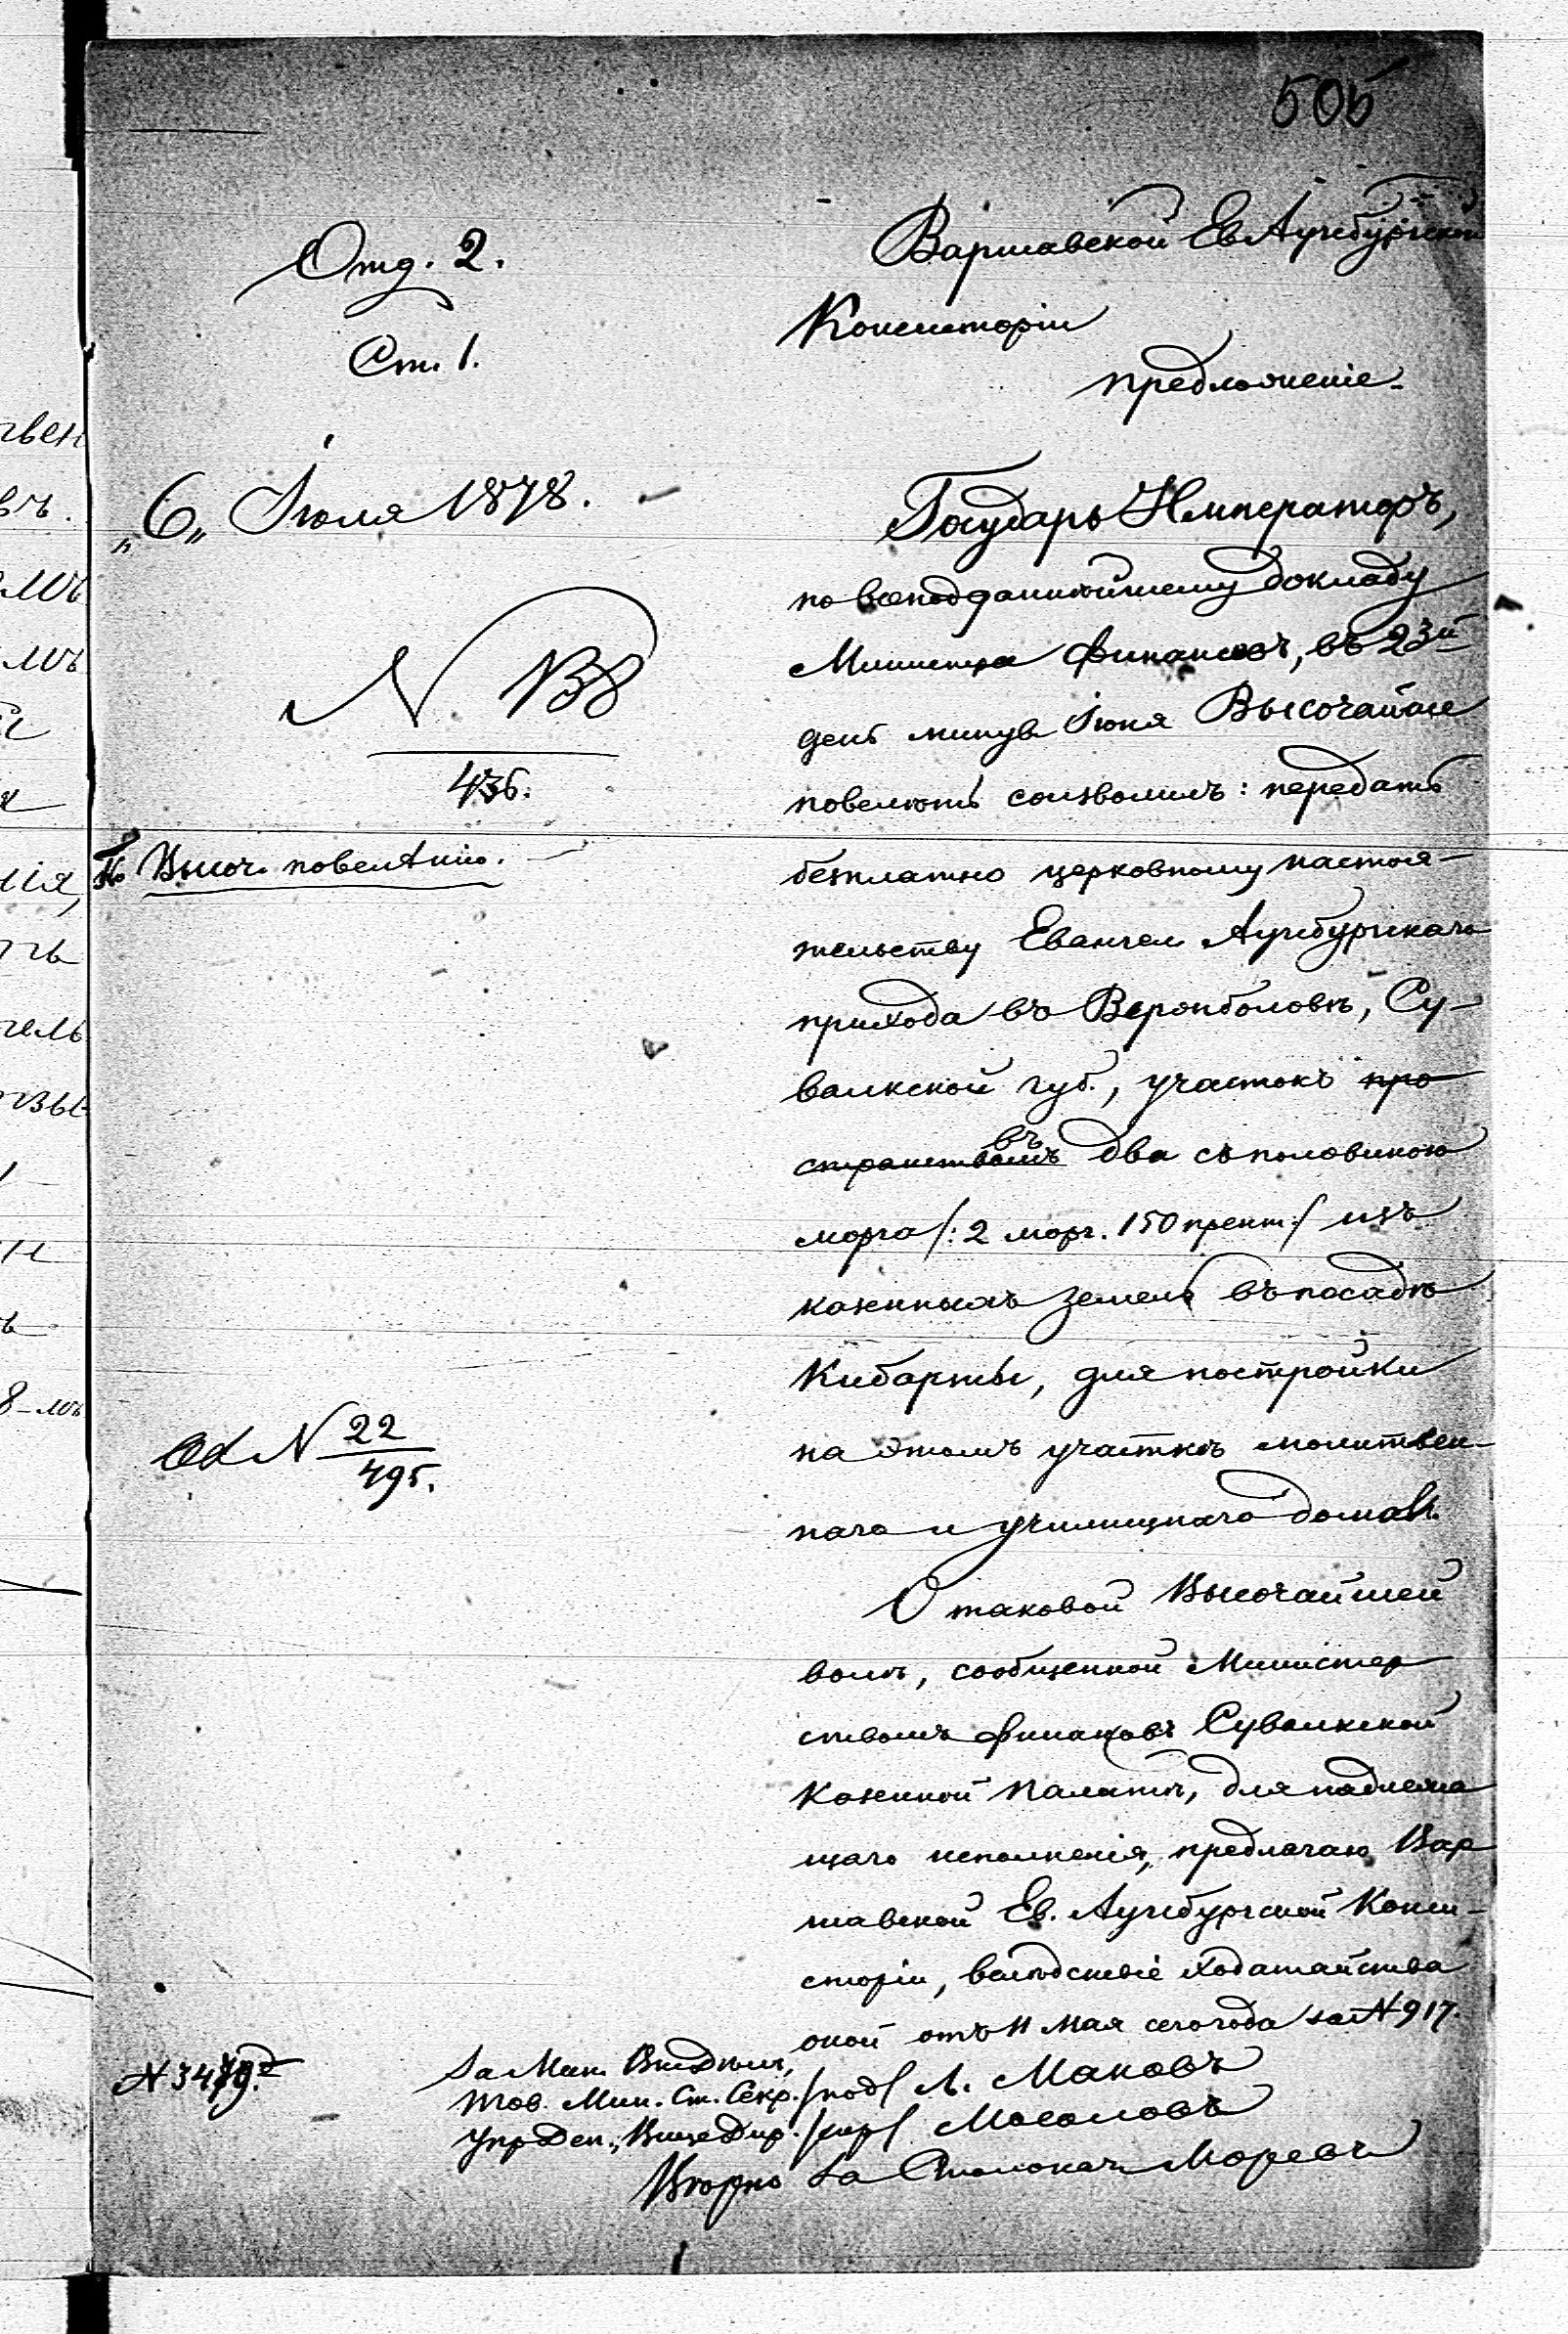 505
Отд. 2.
Ст. 1.
„6„ Іюля 1878.
N 138
436.
По Высоч. повелѣнію.
Od N 22
495.
Варшавской Ев Аугсбургской
Консисторіи
предложеніе.
Государь Императоръ,
по всеподданнѣйшему докладу
Министра Финансовъ, въ 23й
день минув Іюня Высочайше
повелѣть соизволилъ: передать
безплатно церковному настоя-
тельству Евангел Аугсбургскаго
прихода въ Вержболовѣ, Су-
валкской губ., участокъ про
странствомъ въ два съ половиною
морга /: 2 морг. 150 прент :/ изъ
казенныхъ земель въ посадѣ
Кибарты, для постройки
на этомъ участкѣ молитвен-
наго и училищнаго домовъ.
О таковой Высочайшей
волѣ, сообщенной Министер
ствомъ Финансовъ Сувалкской
Казенной Палатѣ, для надлежа
щаго исполненія, предлагаю Вар
шавской Ев. Аугсбургской Конси-
сторіи, вслѣдствіе ходатайства
оной отъ 11 Мая сего года за N 917.
N 3479.
За Мин. Внудѣлъ,
Тов. Мин. Ст. Секр. /под/ Л. Маковъ
Упр Деп., Вице Дир. /скр/ Мосоловъ
Вѣрно За Столонач Моревъ